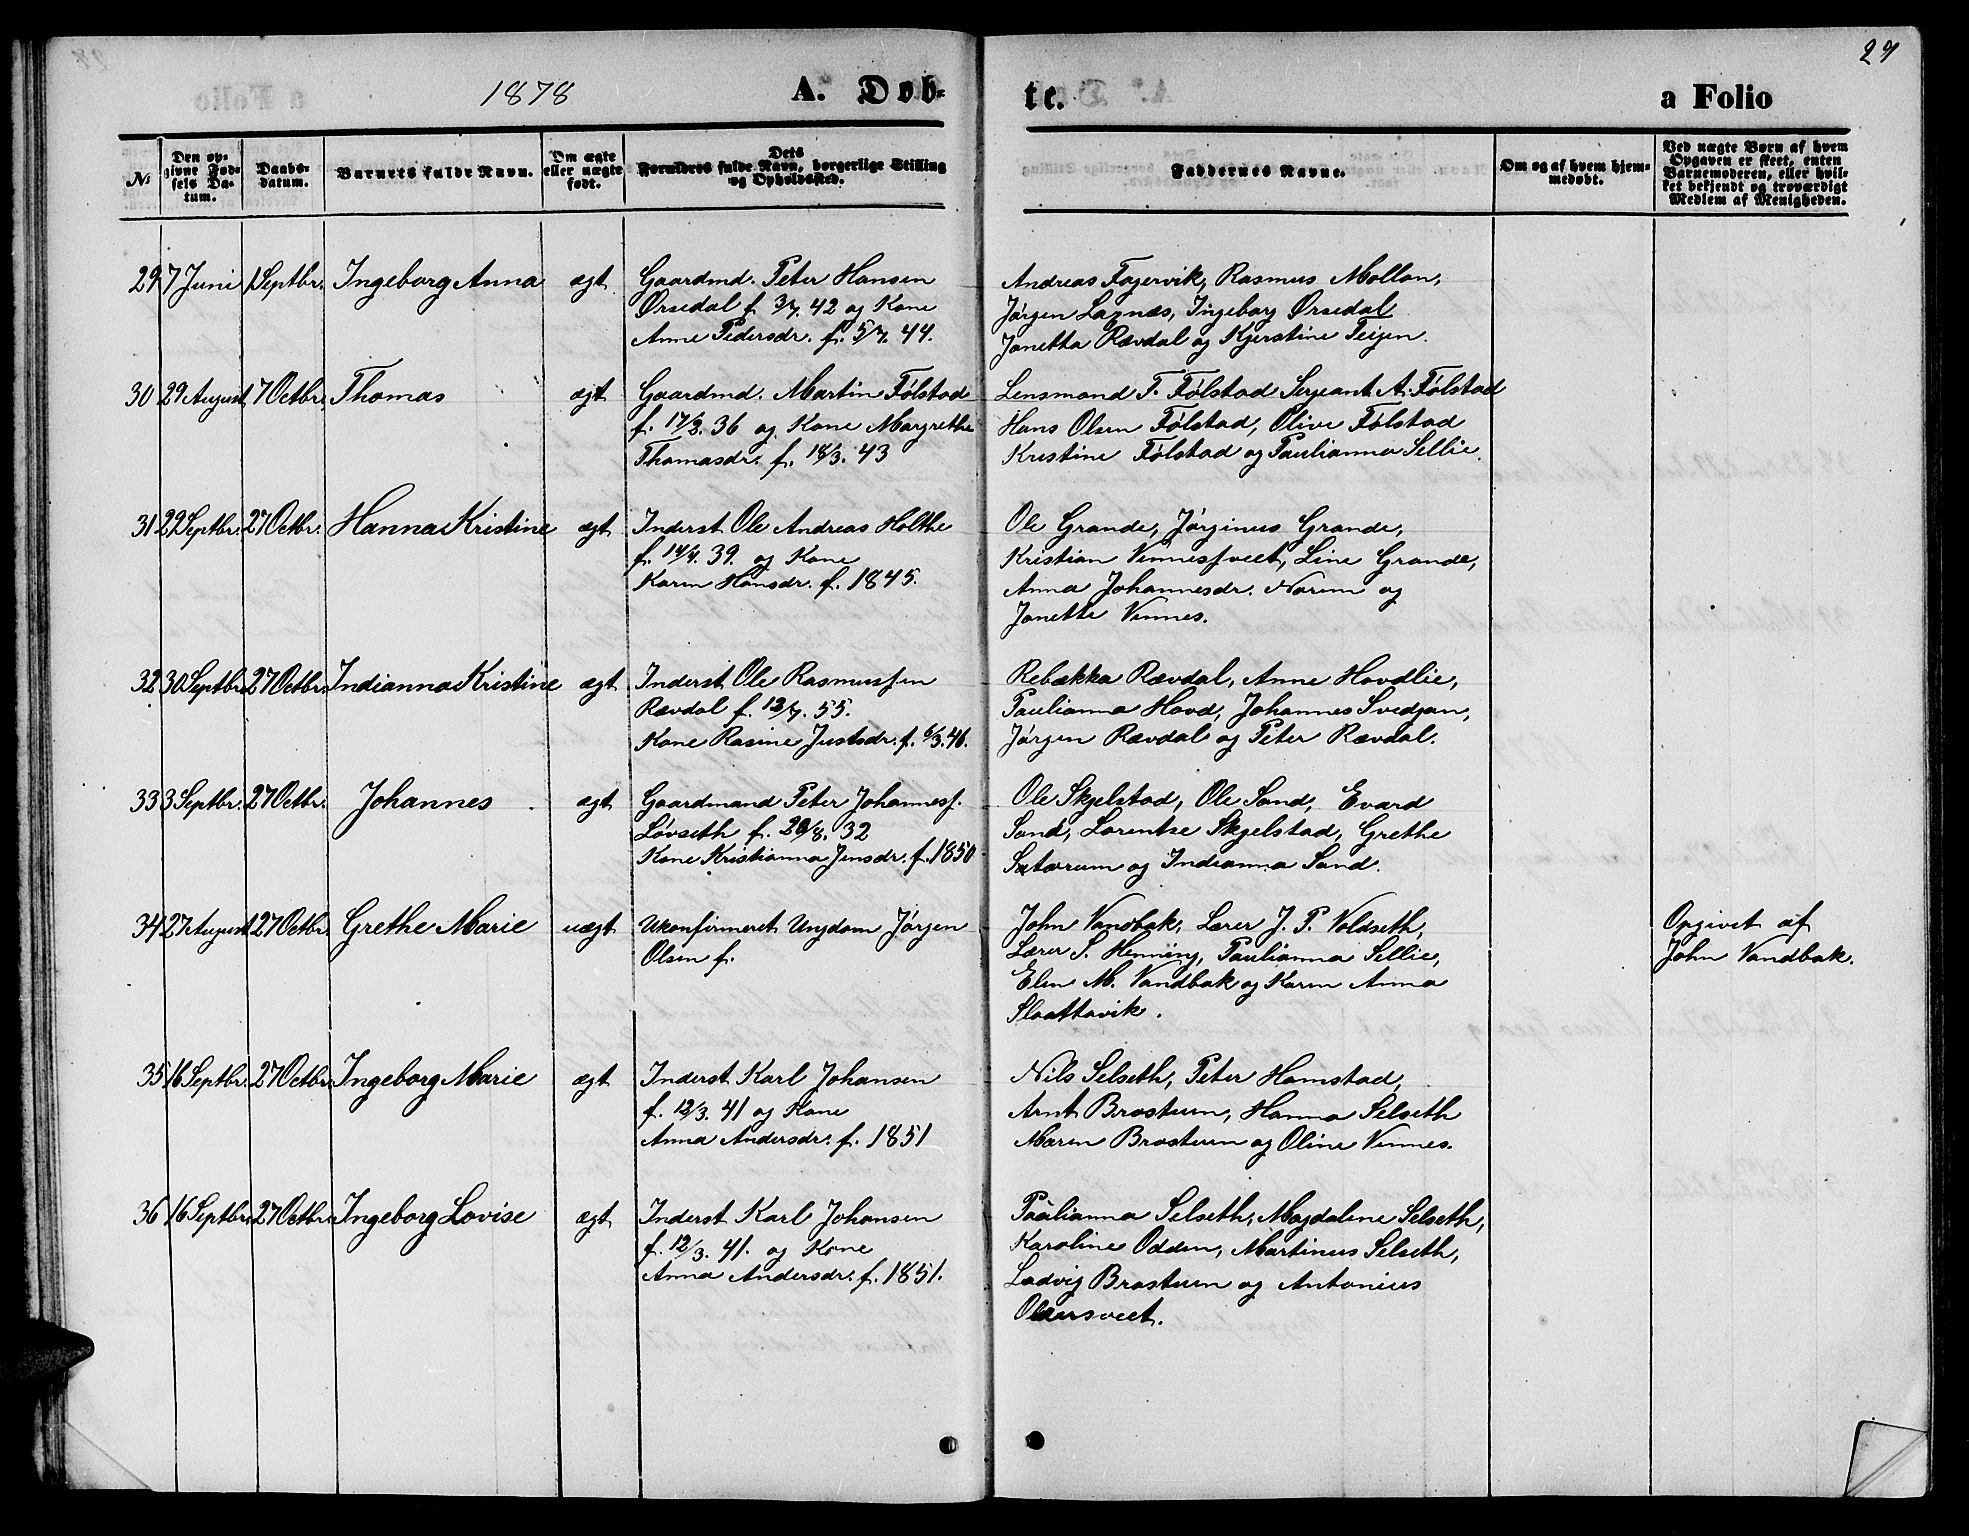 29
1878 A. Døb- te. a Folio
No
Den op-
givne Fød-
sels Da-
tum.
Daabs-
datum.
Barnets fulde Navn.
Om ægte
eller uægte
født.
Dets
Forældres fulde Navn, borgerlige Stilling
og Opholdssted.
Faddernes Navne.
Om og af hvem hjem-
medøbt.
Ved uægte Børn af hvem
Opgaven er skeet, enten
Barnemoderen, eller hvil-
ket bekjendt og troværdigt
Medlem af Menigheden.
29 7 Juni 1 Septbr. Ingeborg Anna ægt
Gaardmd. Peter Hansen
Ørsedal f. 3/7. 42 og Kone
Anne Pedersdr. f. 5/7. 44.
Andreas Fagervik, Rasmus Mollan,
Jørgen Laxnæs, Ingeborg Ørsedal
Janetta Rævdal og Kjerstine Teigen.
30 29 August 7 Octbr. Thomas ægt
Gaardmd. Martin Følstad
f. 17/2. 36 og Kone Margrethe
Thomasdr. f. 18/3. 43
Lensmand T. Følstad Sergeant A. Følstad
Hans Olsen Følstad, Olive Følstad
Kristine Følstad og Paulianna Sellie.
31 22 Septbr. 27 Octbr. Hanna Kristine ægt
Inderst Ole Andreas Holthe
f. 14/4. 39. og Kone
Karen Hansdr. f. 1845.
Ole Grande, Jørginus Grande,
Kristian Vinnessveet, Line Grande,
Anna Johannesdr. Norem og
Janette Vinnes.
32 30 Septbr. 27 Octbr. Indianna Kristine ægt
Inderst Ole Rasmussen
Rævdal f. 12/7. 55.
Kone Rasine Justsdr. f. 6/3. 46.
Rebækka Rævdal, Anne Hovdlie,
Paulianna Hovd, Johannes Svedjan,
Jørgen Rævdal og Peter Rævdal.
33 3 Septbr. 27 Octbr. Johannes ægt
Gaardmand Peter Johanness.
Løvseth f. 20/8. 32
Kone Kristianna Jensdr. f. 1850
Ole Skjelstad, Ole Sand, Evard
Sand, Lorentse Skjelstad, Grethe
Sætarum og Indianna Sand.
34 27 August 27 Octbr. Grethe Marie uægt
Ukonfirmeret Ungdom Jørgen
Olsen f.
John Vandbak, Lærer J. P. Voldseth,
Lærer S. Henning, Paulianna Sellie,
Elen M. Vandbak og Karen Anna
Slaattavik.
Opgivet af
John Vandbak.
35 16 Septbr. 27 Octbr. Ingeborg Marie ægt
Inderst Karl Johansen
f. 12/3. 41 og Kone
Anna Andersdr. f. 1851
Nils Selseth, Peter Hamstad,
Arnt Brostuen, Hanna Selseth
Maren Brostuen og Oline Vinnes.
36 16 Septbr. 27 Octbr. Ingeborg Lovise ægt
Inderst Karl Johansen
f. 12/3. 41. og Kone
Anna Andersdr. f. 1851.
Paulianna Selseth, Magdalene Selseth,
Karoline Odden, Martinus Selseth,
Ludvig Brostuen og Antonius
Olaussveet.